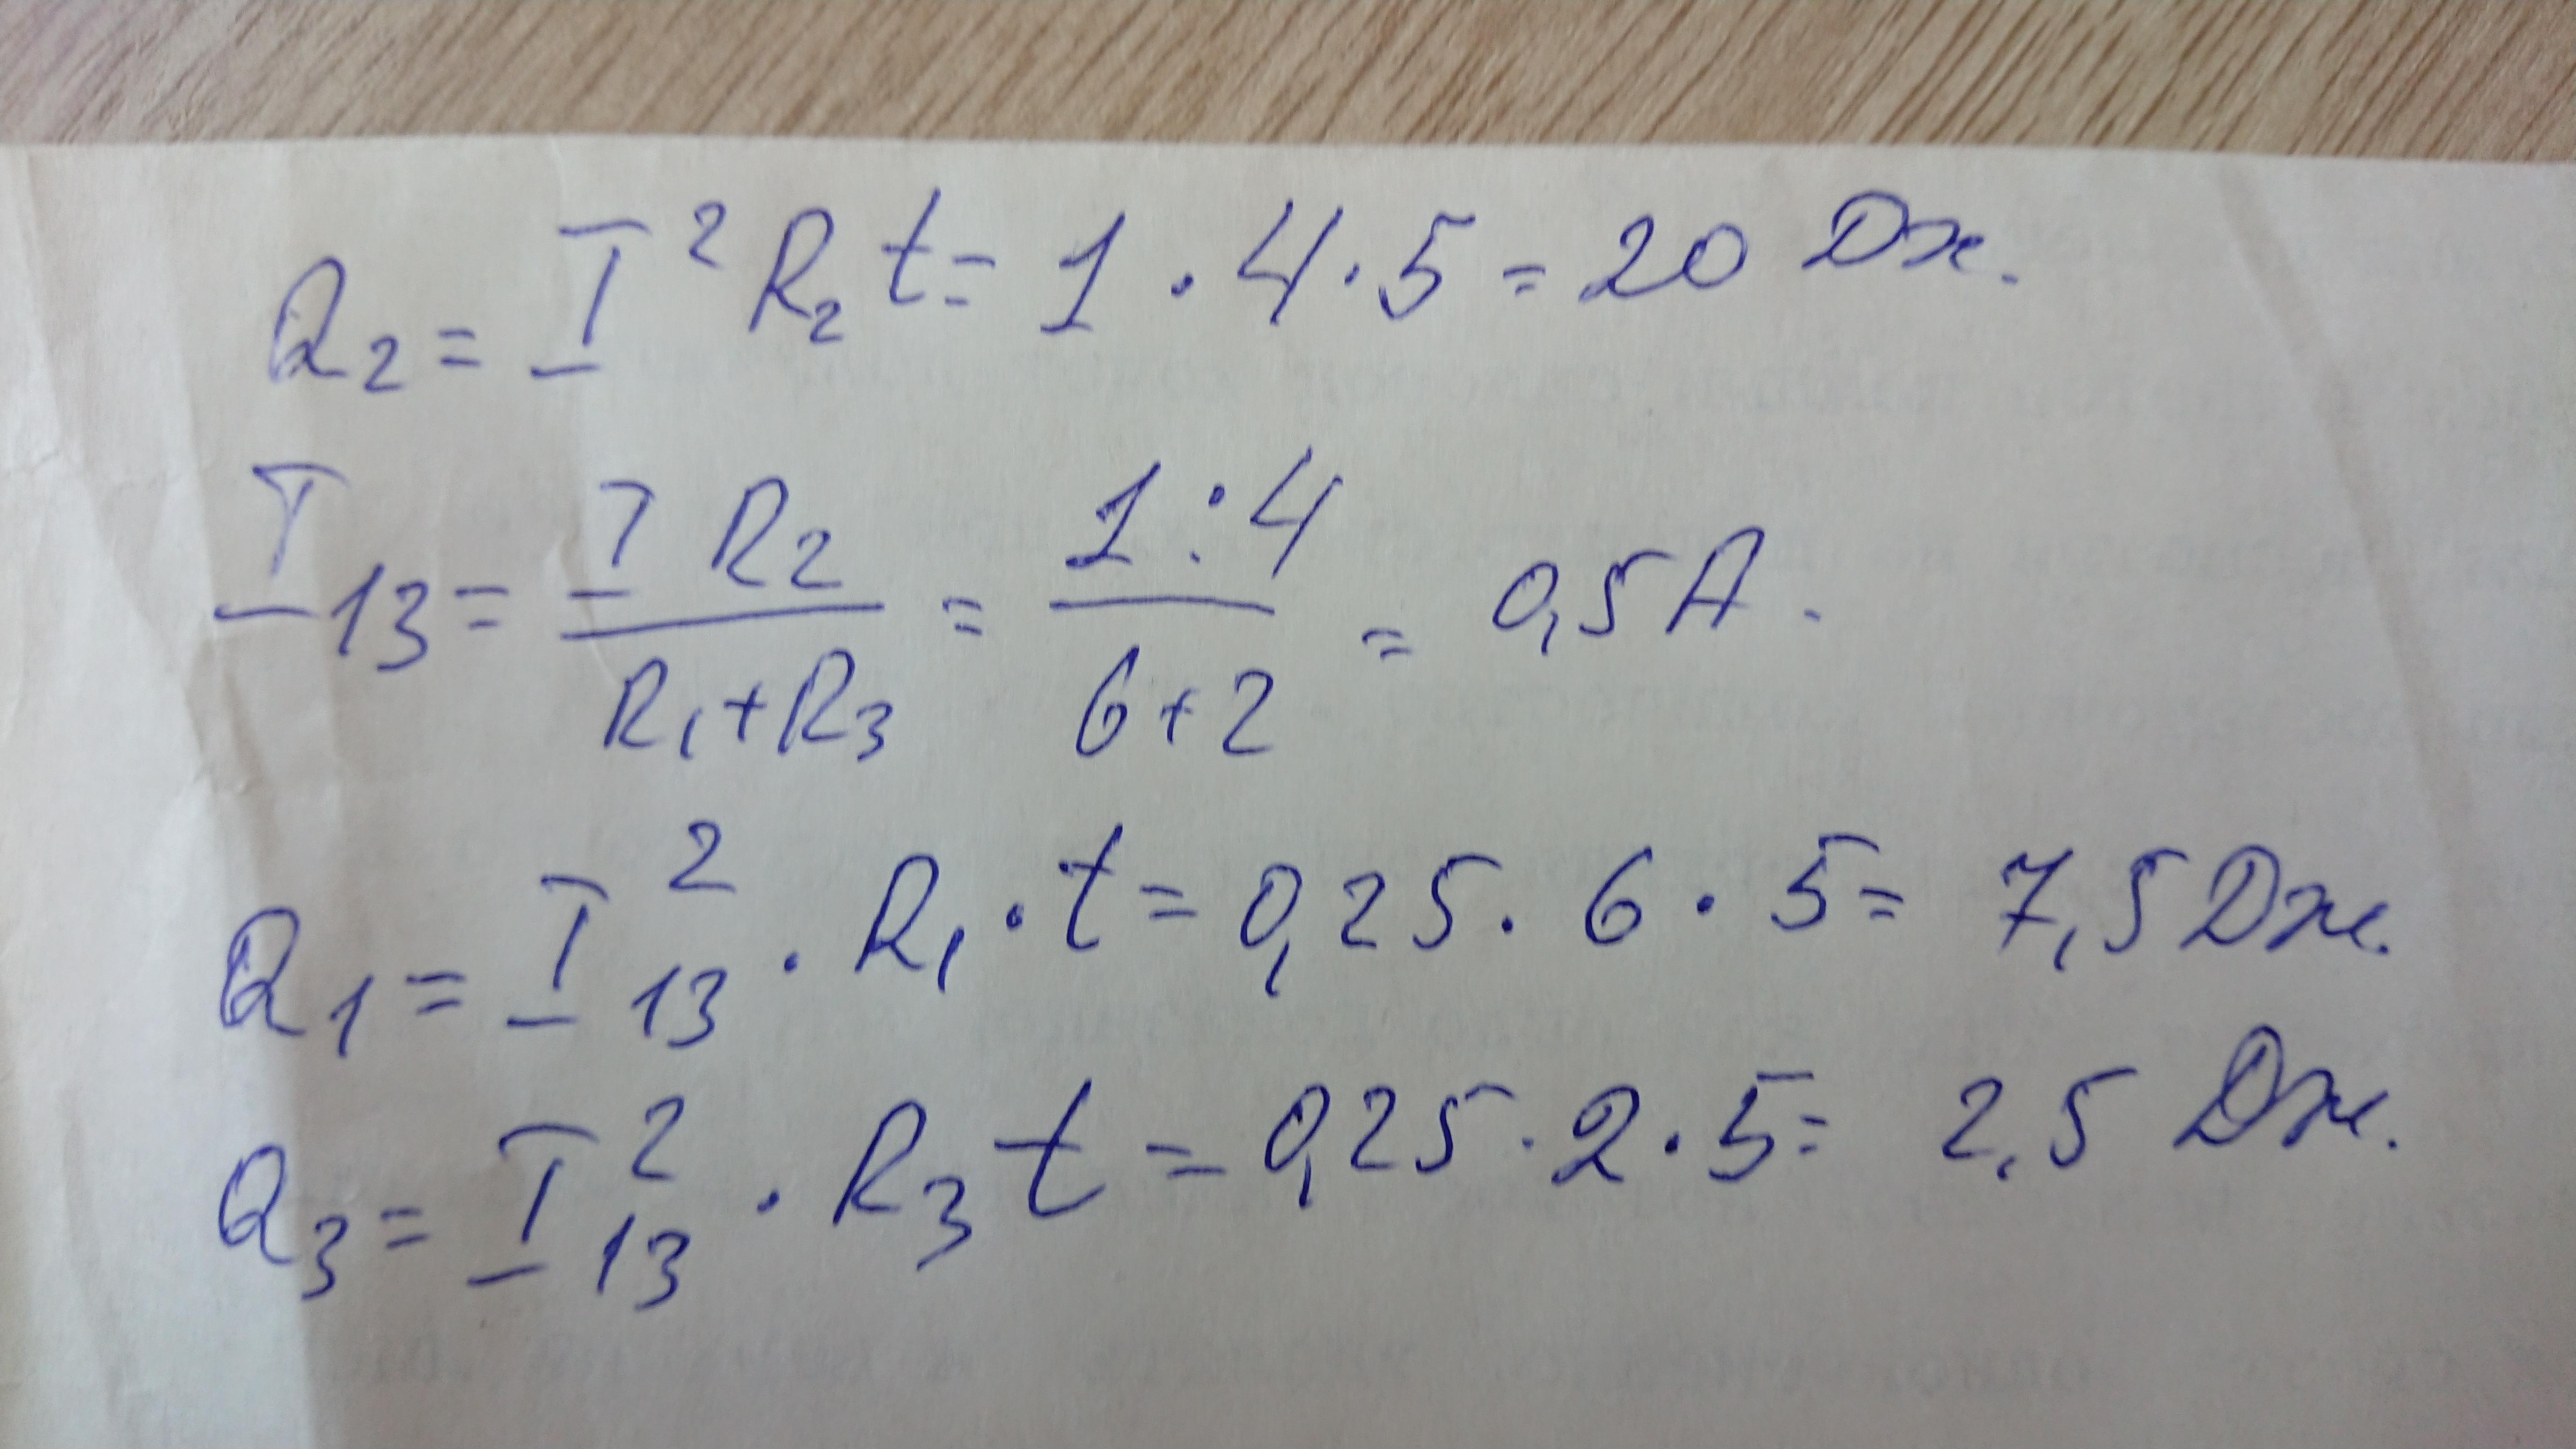 Q₂ = I² R₂ t = 1 · 4 · 5 = 20 Дж.
I₁₃ = I R₂ / R₁+R₃ = 1 : 4 / 6+2 = 0,5 А.
Q₁ = I₁₃² · R₁ · t = 0,25 · 6 · 5 = 7,5 Дж.
Q₃ = I₁₃² · R₃ t = 0,25 · 2 · 5 = 2,5 Дж.